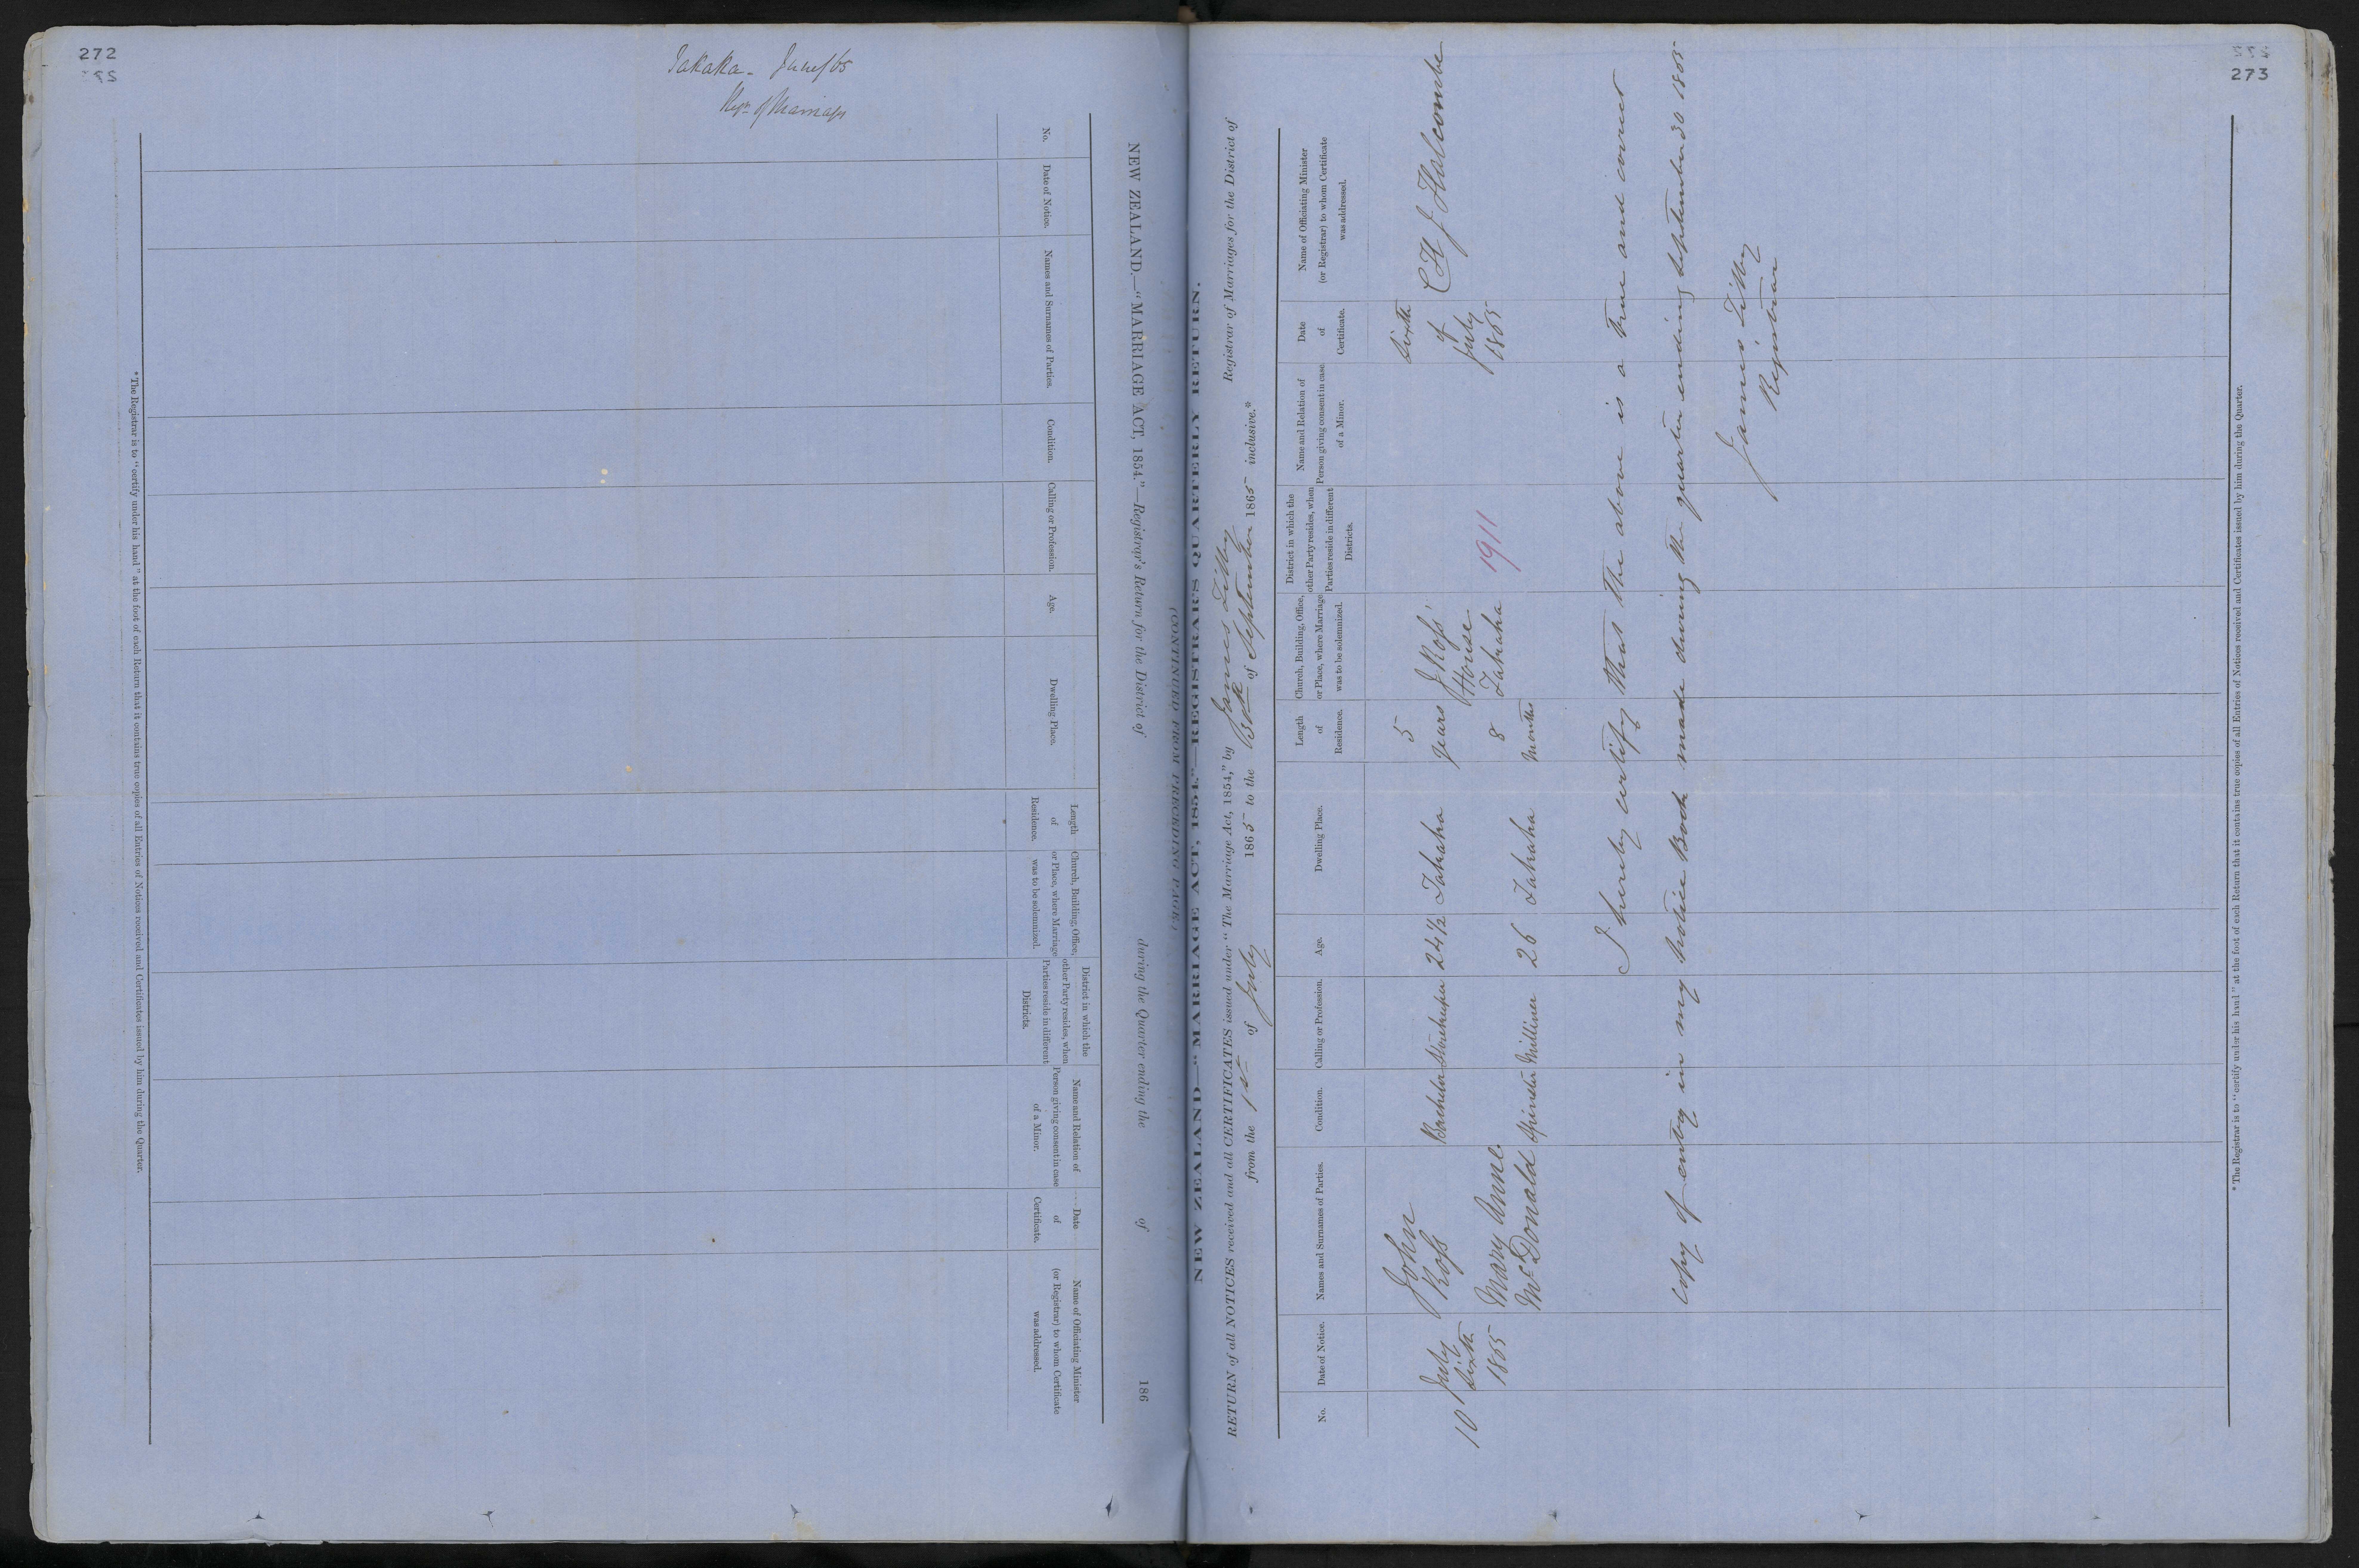 272
Takaka - June/65
Regr of Marriages
NEW ZEALAND.—"MARRIAGE ACT, 1854."—Registrar's Return for the District of during the Quarter ending the of 186
No.
Date of Notice.
Names and Surnames of Parties.
Condition.
Calling or Profession.
Age.
Dwelling Place.
Length
of
Residence.
Church, Building, Office,
or Place, where Marriage
was to be solemnized.
District in which the
other Party resides, when
Parties reside in different
Districts.
Name and Relation of
Person giving consent in case
of a Minor.
Date
of
Certificate.
Name of Officiating Minister
(or Registrar) to whom Certificate
was addressed.
* The Registrar is to "certify under his hand" at the foot of each Return that it contains true copies of all Entries of Notices received and Certificates issued by him during the Quarter.
273
(CONTINUED FROM PRECEDING PAGE)
NEW ZEALAND—"MARRIAGE ACT, 1854."—REGISTRAR'S QUARTERLY RETURN.
RETURN of all NOTICES received and all CERTIFICATES issued under "The Marriage Act, 1854," by James Lilley Registrar of Marriages for the District of
from the 1st of July 1865 to the 30th of September 1865 inclusive.*
No.
Date of Notice.
Names and Surnames of Parties.
Condition.
Calling or Profession.
Age.
Dwelling Place.
Length
of
Residence.
Church, Building, Office,
or Place, where Marriage
was to be solemnized.
District in which the
other Party resides, when
Parties reside in different
Districts.
Name and Relation of
Person giving consent in case
of a Minor.
Date
of
Certificate.
Name of Officiating Minister
(or Registrar) to whom Certificate
was addressed.
10
July
Sixth
1865
John
Ross
Bachelor
Storekeeper
24½
Takaka
5
years
Mary Anne
McDonald
Spinster
Milliner
26
Takaka
8
Months
J Ross'
House
Takaka
1911
Sixth
of
July
1865
C H J Halcombe
I hereby certify that the above is a true and correct
copy of entry in my Notice Book made during the quarter ending September 30 1865
James Lilley
Registrar
* The Registrar is to "certify under his hand" at the foot of each Return that it contains true copies of all Entries of Notices received and Certificates issued by him during the Quarter.